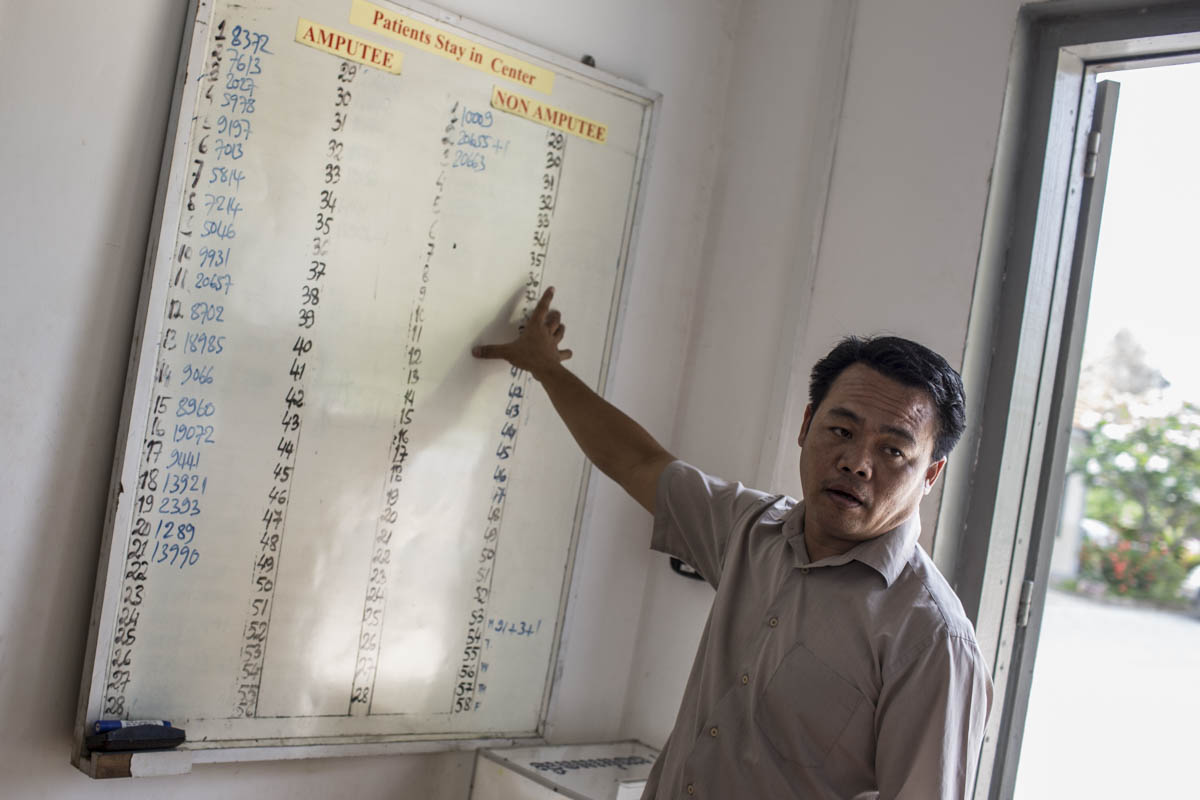 Patients Stay in Center
AMPUTEE
NON AMPUTEE
1 8372
7613
2027
4 5978
9197
6 7013
7 5814
8 7214
5046
10 9931
11 20657
12 8702
13 18985
14 9066
15 8960
16 19072
17 9441
18 13921
19 2393
20 1289
21 13990
22
23
24
25
26
27
28
29
30
31
32
33
34
35
36
37
38
39
40
41
42
43
44
45
46
47
48
49
50
51
52
53
54
55
56
1 10009
2 20655+1
3 20663
4
5
6
7
8
9
10
11
12
13
14
15
16
17
18
19
20
21
22
23
24
25
26
27
28
29
30
31
32
33
34
35
36
37
41
42
43
44
45
46
47
48
49
50
51
52
53
54
55
56
57
58
21+3+1